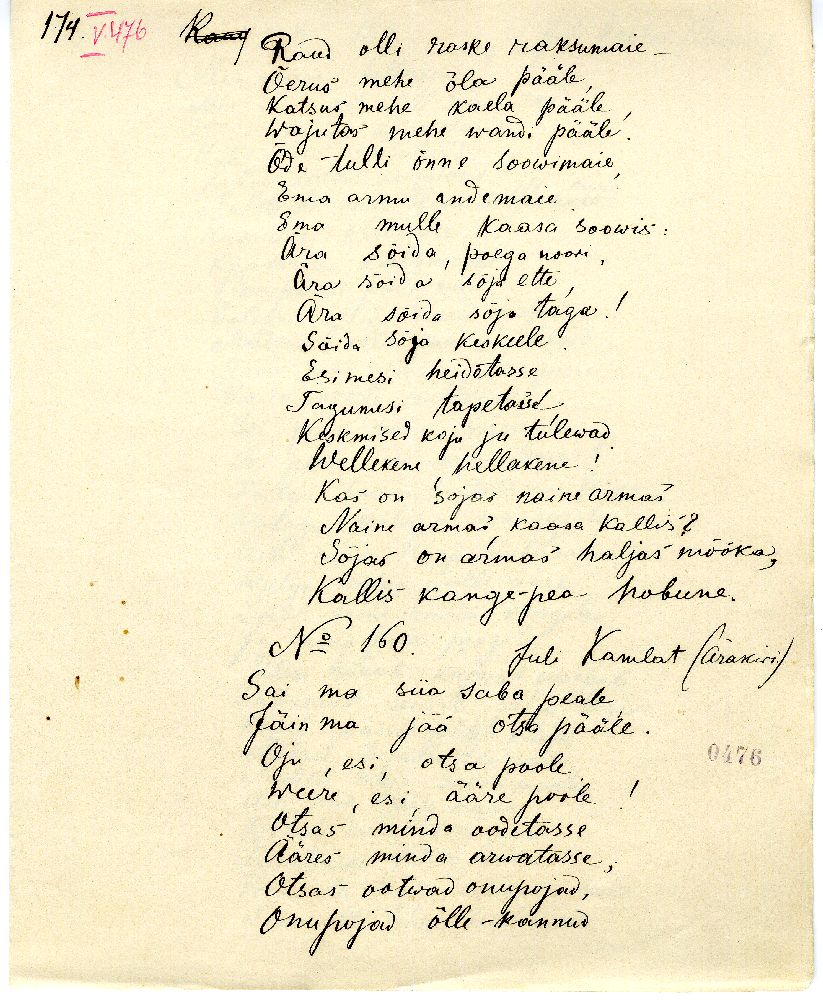 174. V 476
Raud olli raske raksumaie –
Õerus mehe õla pääle,
Katsus mehe kaela pääle,
Wajutas mehe wandi pääle.
Õde tulli õnne soowimaie,
Ema armu andemaie.
Ema mulle kaasa soowis:
Ära sõida, poega noori,
Ära sõida sõja ette,
Ära sõida sõja taga!
Sõida sõja keskeele.
Esimesi heidetasse
Tagumesi tapetasse,
Keskmised koju ju tulewad.
Wellekene, hellakene!
Kas on sõjas naine armas
Naine armas, kaasa kallis?
Sõjas on armas haljas mõõka,
Kallis kange-pea hobune.
No 160. Juli Kamlat (Ärakiri)
Sai ma siia saba peale,
Jäin ma jää otsa pääle.
Oju, esi, otsa poole
Weere, esi, ääre poole!
Otsas minda oodetasse
Ääres minda arwatasse,
Otsas ootwad onupojad,
Onupojad õlle-kannud
0476